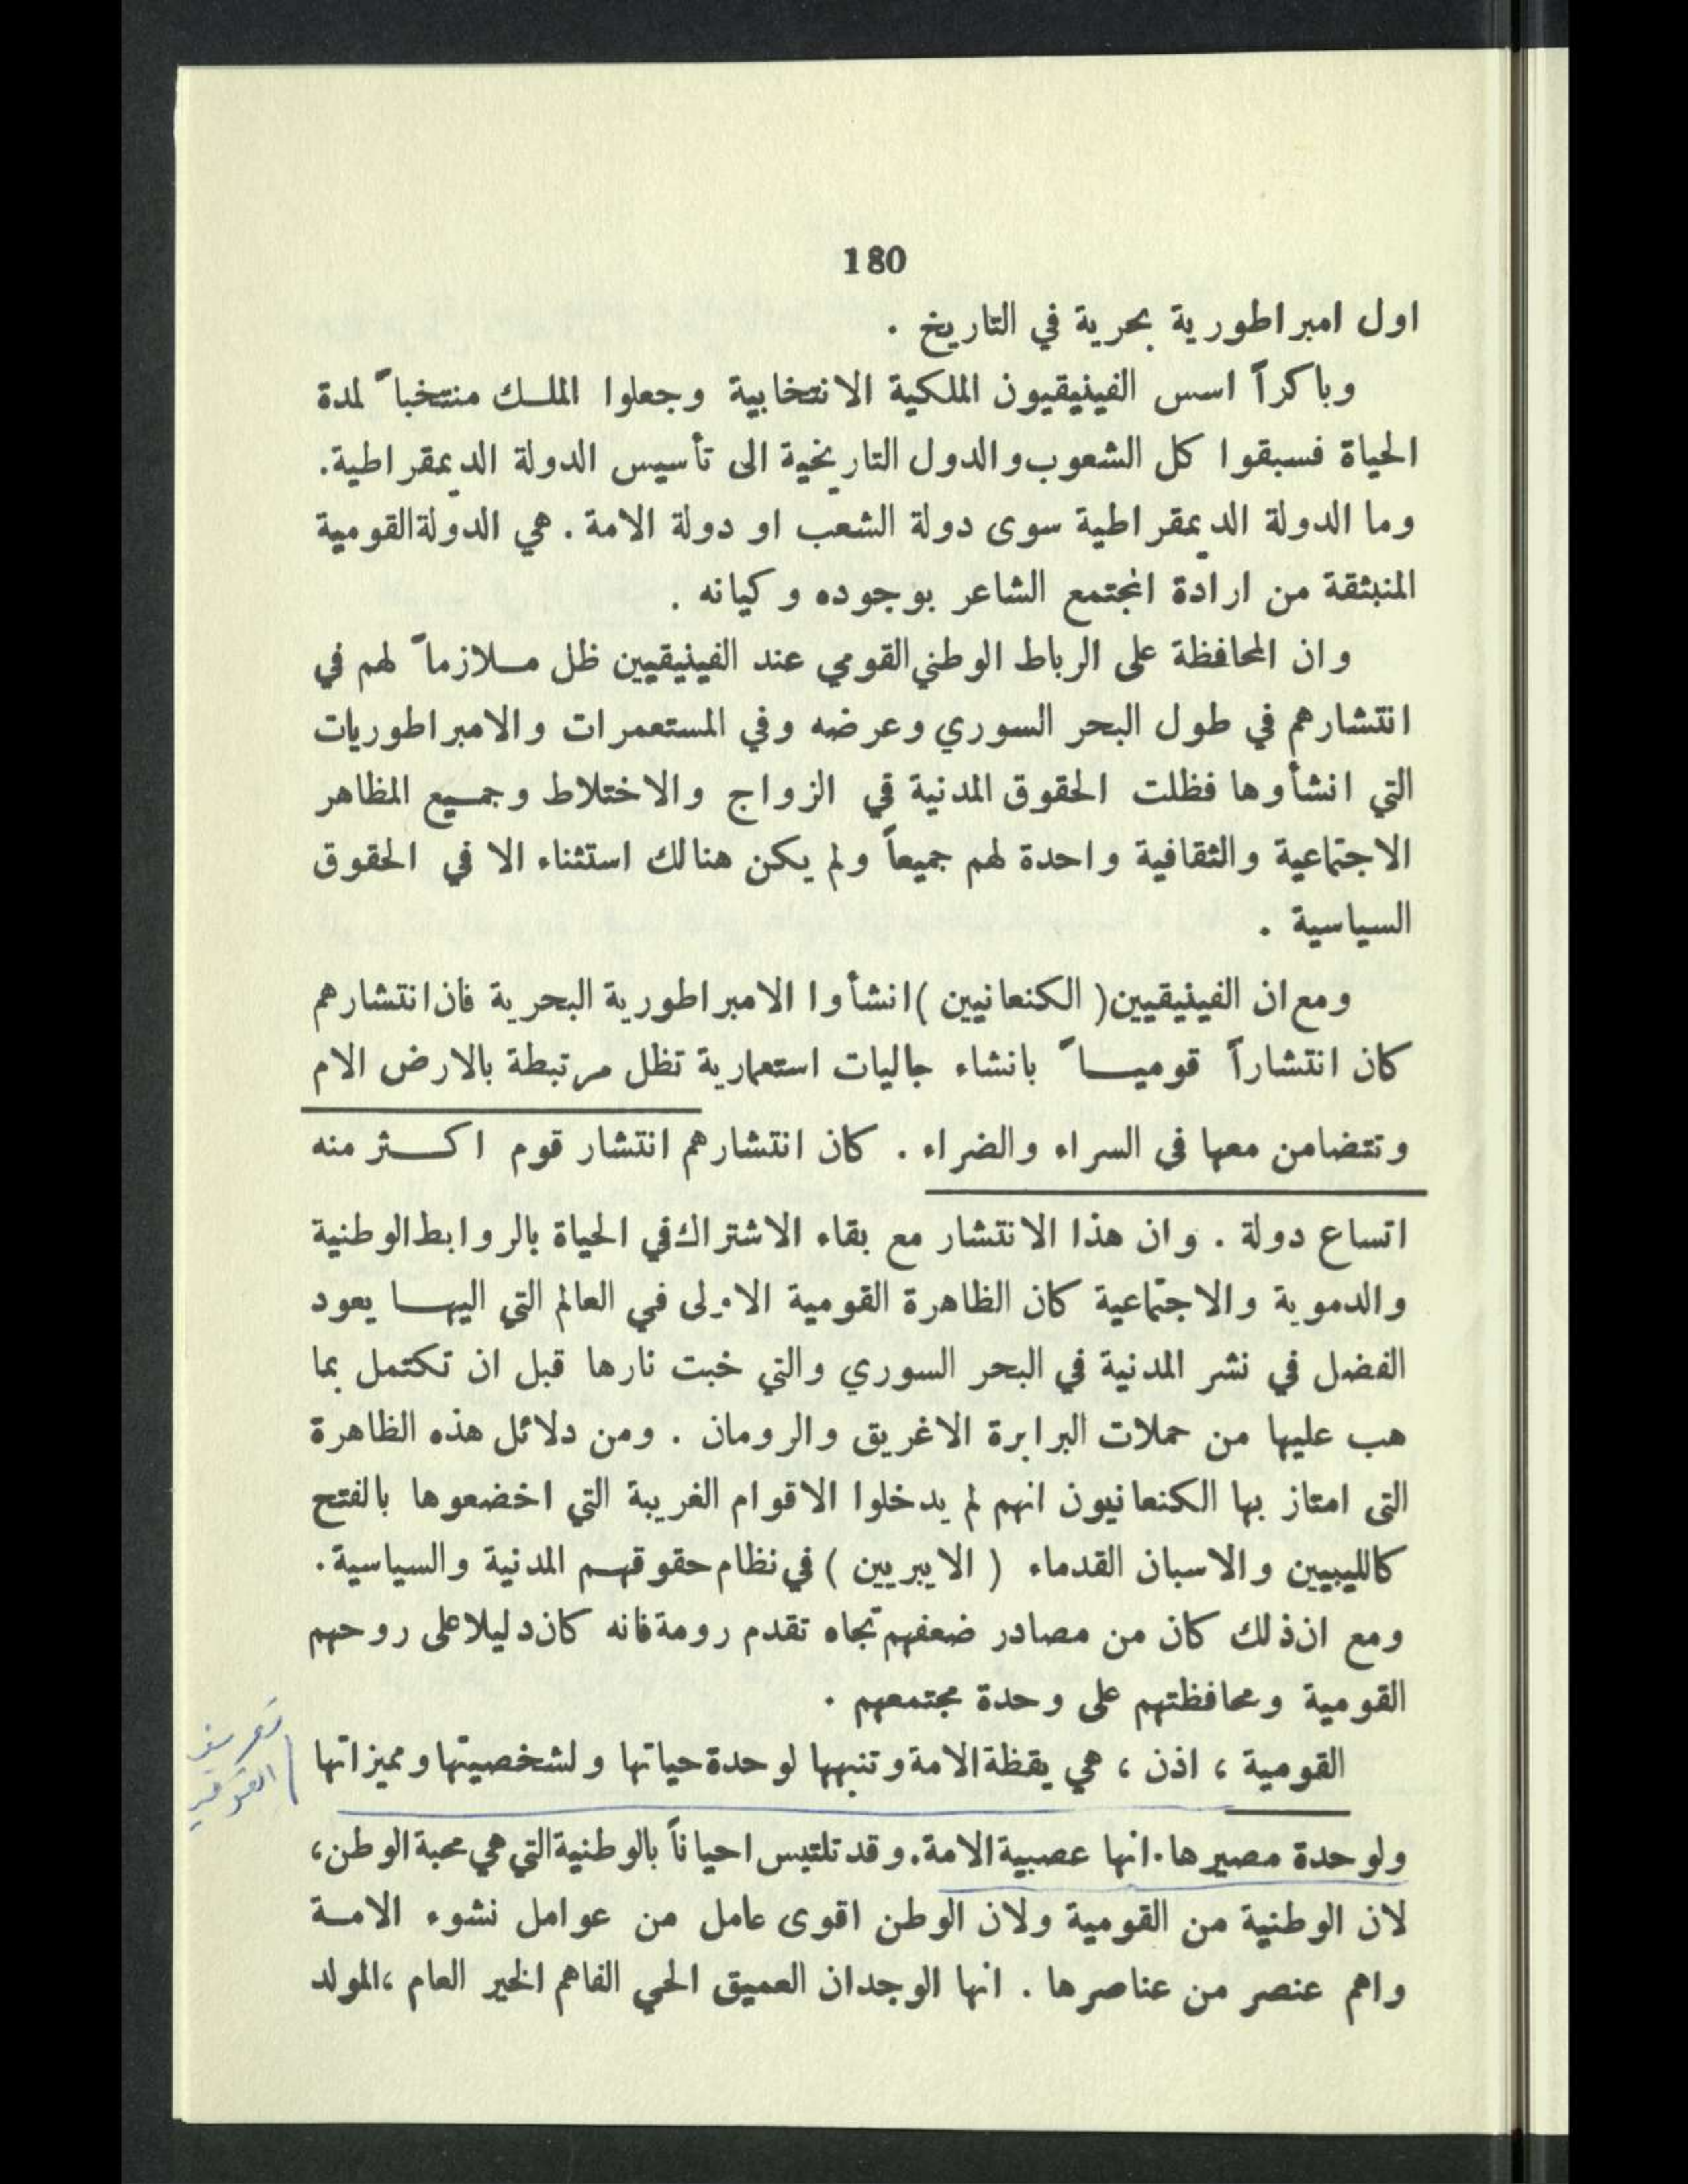 180
اول امبراطورية بحرية في التاريخ .
وباكراً اسس الفينيقيون الملكية الانتخابية وجعلوا الملك منتخباً لمدة
الحياة فسبقوا كل الشعوب والدول التاريخية الى تأسيس الدولة الديمقراطية.
وما الدولة الديمقراطية سوى دولة الشعب او دولة الامة . هي الدولة القومية
المنبثقة من ارادة المجتمع الشاعر بوجوده وكيانه .
وان المحافظة على الرباط الوطني القومي عند الفينيقيين ظل ملازماً لهم في
انتشارهم في طول البحر السوري وعرضه وفي المستعمرات والامبراطوريات
التي انشأوها فظلت الحقوق المدنية في الزواج والاختلاط وجميع المظاهر
الاجتماعية والثقافية واحدة لهم جميعاً ولم يكن هنالك استثناء الا في الحقوق
السياسية .
ومع ان الفينيقيين (الكنعانيين) انشأوا الامبراطورية البحرية فان انتشارهم
كان انتشاراً قومياً بانشاء جاليات استعمارية تظل مرتبطة بالارض الام
وتتضامن معها في السراء والضراء . كان انتشارهم انتشار قوم اكثر منه
اتساع دولة . وان هذا الانتشار مع بقاء الاشتراك في الحياة بالروابط الوطنية
والدموية والاجتماعية كان الظاهرة القومية الاولى في العالم التي اليها يعود
الفضل في نشر المدنية في البحر السوري والتي خبت نارها قبل ان تكتمل بما
هب عليها من حملات البرابرة الاغريق والرومان . ومن دلائل هذه الظاهرة
التي امتاز بها الكنعانيون انهم لم يدخلوا الاقوام الغريبة التي اخضعوها بالفتح
كالليبيين والاسبان القدماء ( الايبريين ) في نظام حقوقهم المدنية والسياسية.
ومع ان ذلك كان من مصادر ضعفهم تجاه تقدم رومة فانه كان دليلا على روحهم
القومية ومحافظتهم على وحدة مجتمعهم .
تعريف
القومية
القومية ، اذن ، هي يقظة الامة وتنبهها لوحدة حياتها ولشخصيتها ومميزاتها
ولوحدة مصيرها. انها عصبية الامة. وقد تلتبس احياناً بالوطنية التي هي محبة الوطن،
لان الوطنية من القومية ولان الوطن اقوى عامل من عوامل نشوء الامة
واهم عنصر من عناصرها . انها الوجدان العميق الحي الفاهم الخير العام ، المولد